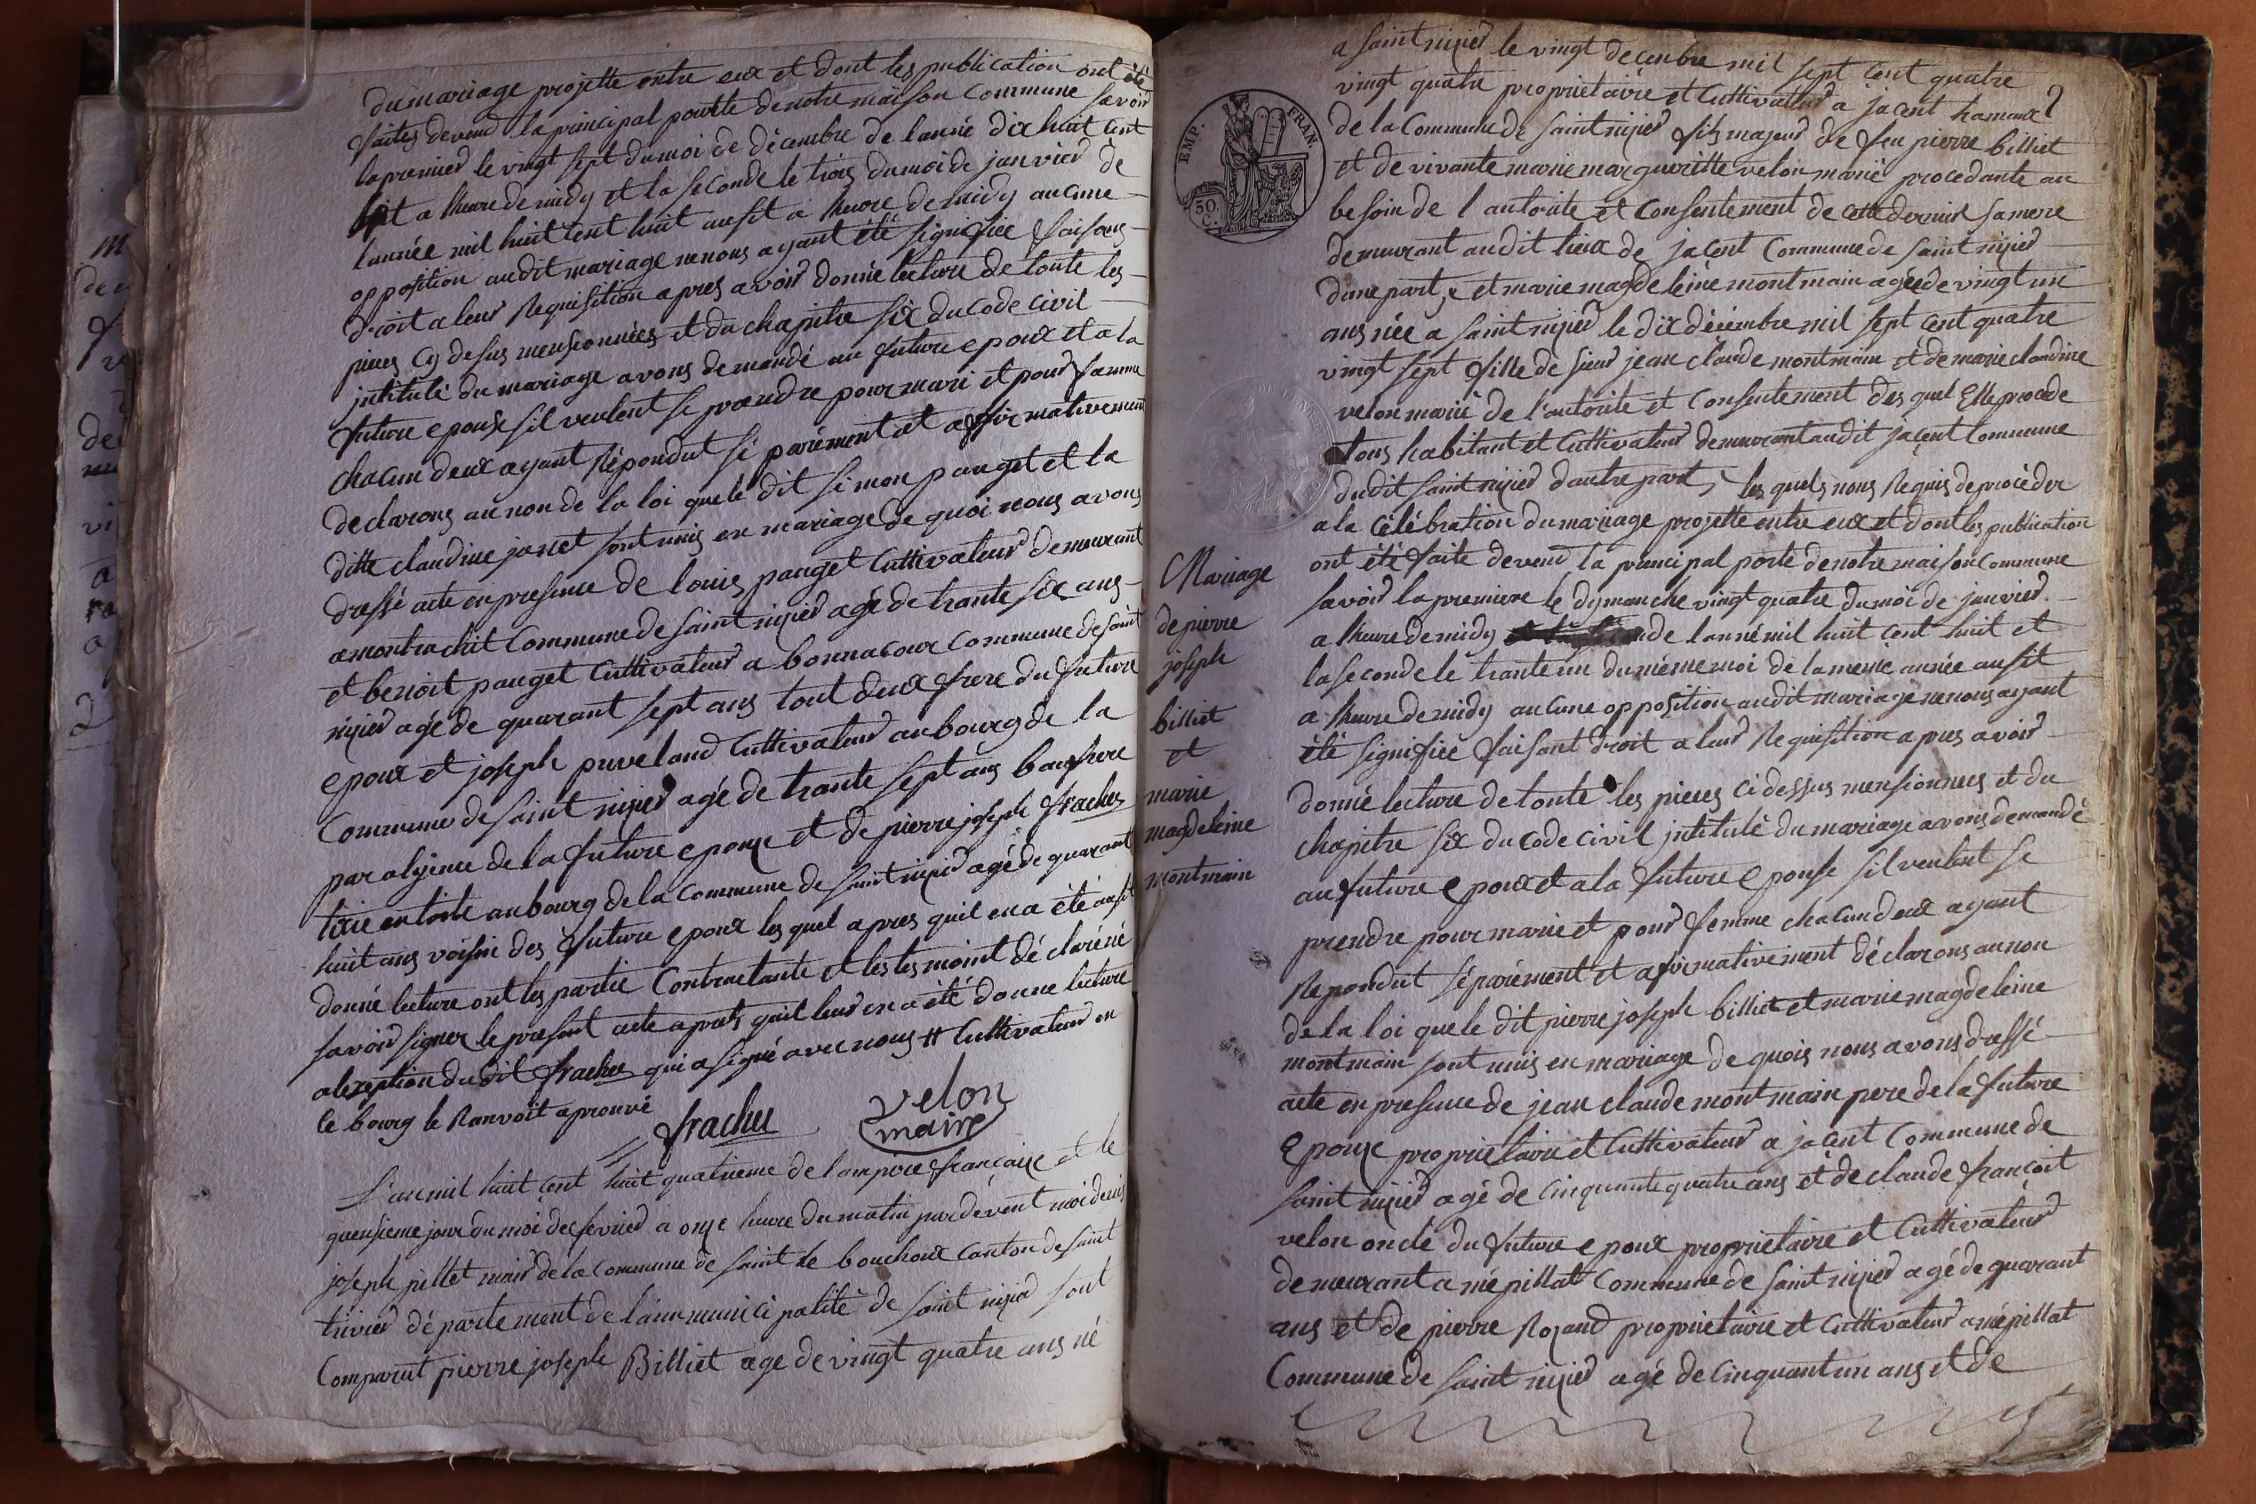 du mariage projette entre eux et dont les publication ont été
faites devend la principal pourte de notre maison Commune savoir
la premier le vingt sept du moi de décembre de lannée dix huit cent
sept a lheure de midy et la seconde le trois du moi de janvier de
lannée mil huit cent huit ausit a lheure de midy aucune
opposition audit mariage ne nous ayant été signifiée faisans
droit a leur Requisition apres avoir donnée lecture de toute les
pieces Cy desus mensionnées et du chapitre six du Code Civil
intitulé du mariage avons demandé au future epoux et a la
future epouse sil veulent se prendre pour mari et pour famme
chacun deux ayant Répondut séparément et affirmativement
declarons au non de la loi que le dit simon pauget et la
ditte claudine janet sont unis en mariage de quoi nous avons
dressé acte en presence de louis pauget Cultivateur demeurant
a montrachit Commune de saint nizier agé de trante six ans
et benoit pauget Cultivateur a bonnacour Commune de saint
nizier agé de quarant sept ans tout deux frere du future
epoux et joseph puveland Cultivateur au bourg de la
Commune de saint nizier agé de trante sept ans baufrere
par alijence de la future epouse et de pierre joseph frachet
au bourg de la Commune de saint nizier agé de quarant
huit ans voisin des future epoux les quel apres quil en a été ausit
donné lecture ont les partie Contractante et les tesmoint déclaré né
savoir signer le present acte aprets quil leur en a été donne lecture
alexeption du dit frachet qui a signé avec nous # Cultivateur en
le bourg le Ranvoit aprouvé
frachet
velon
maire
L'an mil huit cent huit quatrieme de lampire française et le
quensieme jour du moi de fevrier a onze heure du matin pardevent moi denis
joseph pillet mair de la commune de saint  bouchoux Canton de saint
trivier département de lain municipalité de saint nizier sont
Comparut pierre joseph Billiet age de vingt quatre ans né
EMP. FRAN.
50
C.
a saint nizier le vingt decembre mil sept cent quatre
vingt quatre propriétaire et Cultivateur a jacent hamaux
de la Commune de saint nizier fils majeur de feu pierre billiet
et de vivante marie margueritte velon marié procedante au
besoin de l autorite et Consentement de cette dernier sa mere
demeurant audit lieux de jacent Commune de saint nizier
dune part, et marie magdeleine montmain agée de vingt un
ans née a saint nizier le dix décembre mil sept cent quatre
vingt sept fille de sieur jean claude montmain et de marie claudine
velon marié de l'autorite et Consentement des quel Elle procede
tous habitant et Cultivateur demeurant audit jacent Commune
dudit saint nizier dautre part, les quels nous Requis de procéder
a la célébration du mariage projette entre eux et dont les publication
ont été faite devend la principal porte de notre maison Commune
savoir la premiere le dymanche vingt quatre du moi de janvier
a lheure de midy de lanné mil huit cent huit et
la seconde le trante un du méme moi de la meme année ausit
a lheure de midy aucune opposition audit mariage ne nous ayant
été signifiée faisant droit a leur Requisition apres avoir
donné lecture de toute les pieces ci dessus mensionnees et du
chapitre six du Code Civil intitulé du mariage avons demandé
au future epoux et a la future epouse sil veulent se
prendre pour marie et pour femme chacun deux ayant
Repondut séparément et afirmativement déclarons au non
de la loi que le dit pierre joseph billiet et marie magdeleine
montmain sont unis en mariage de quois nous avons dressé
acte en presence de jean claude montmain pere de la future
Epouse propriétaire et Cultivateur a jacent Commune de
saint nizier agé de cinquante quatre ans et de claude françoit
velon oncle du future epoux propriétaire et Cultivateur
demeurant a mépillat Commune de saint nizier agé de quarant
ans et de pierre Rozand propriétaire et Cultivateur a mépillat
Commune de saint nizier agé de cinquant un ans et de
Mariage
de pierre
joseph
billiet
et
marie
magdeleine
montmain